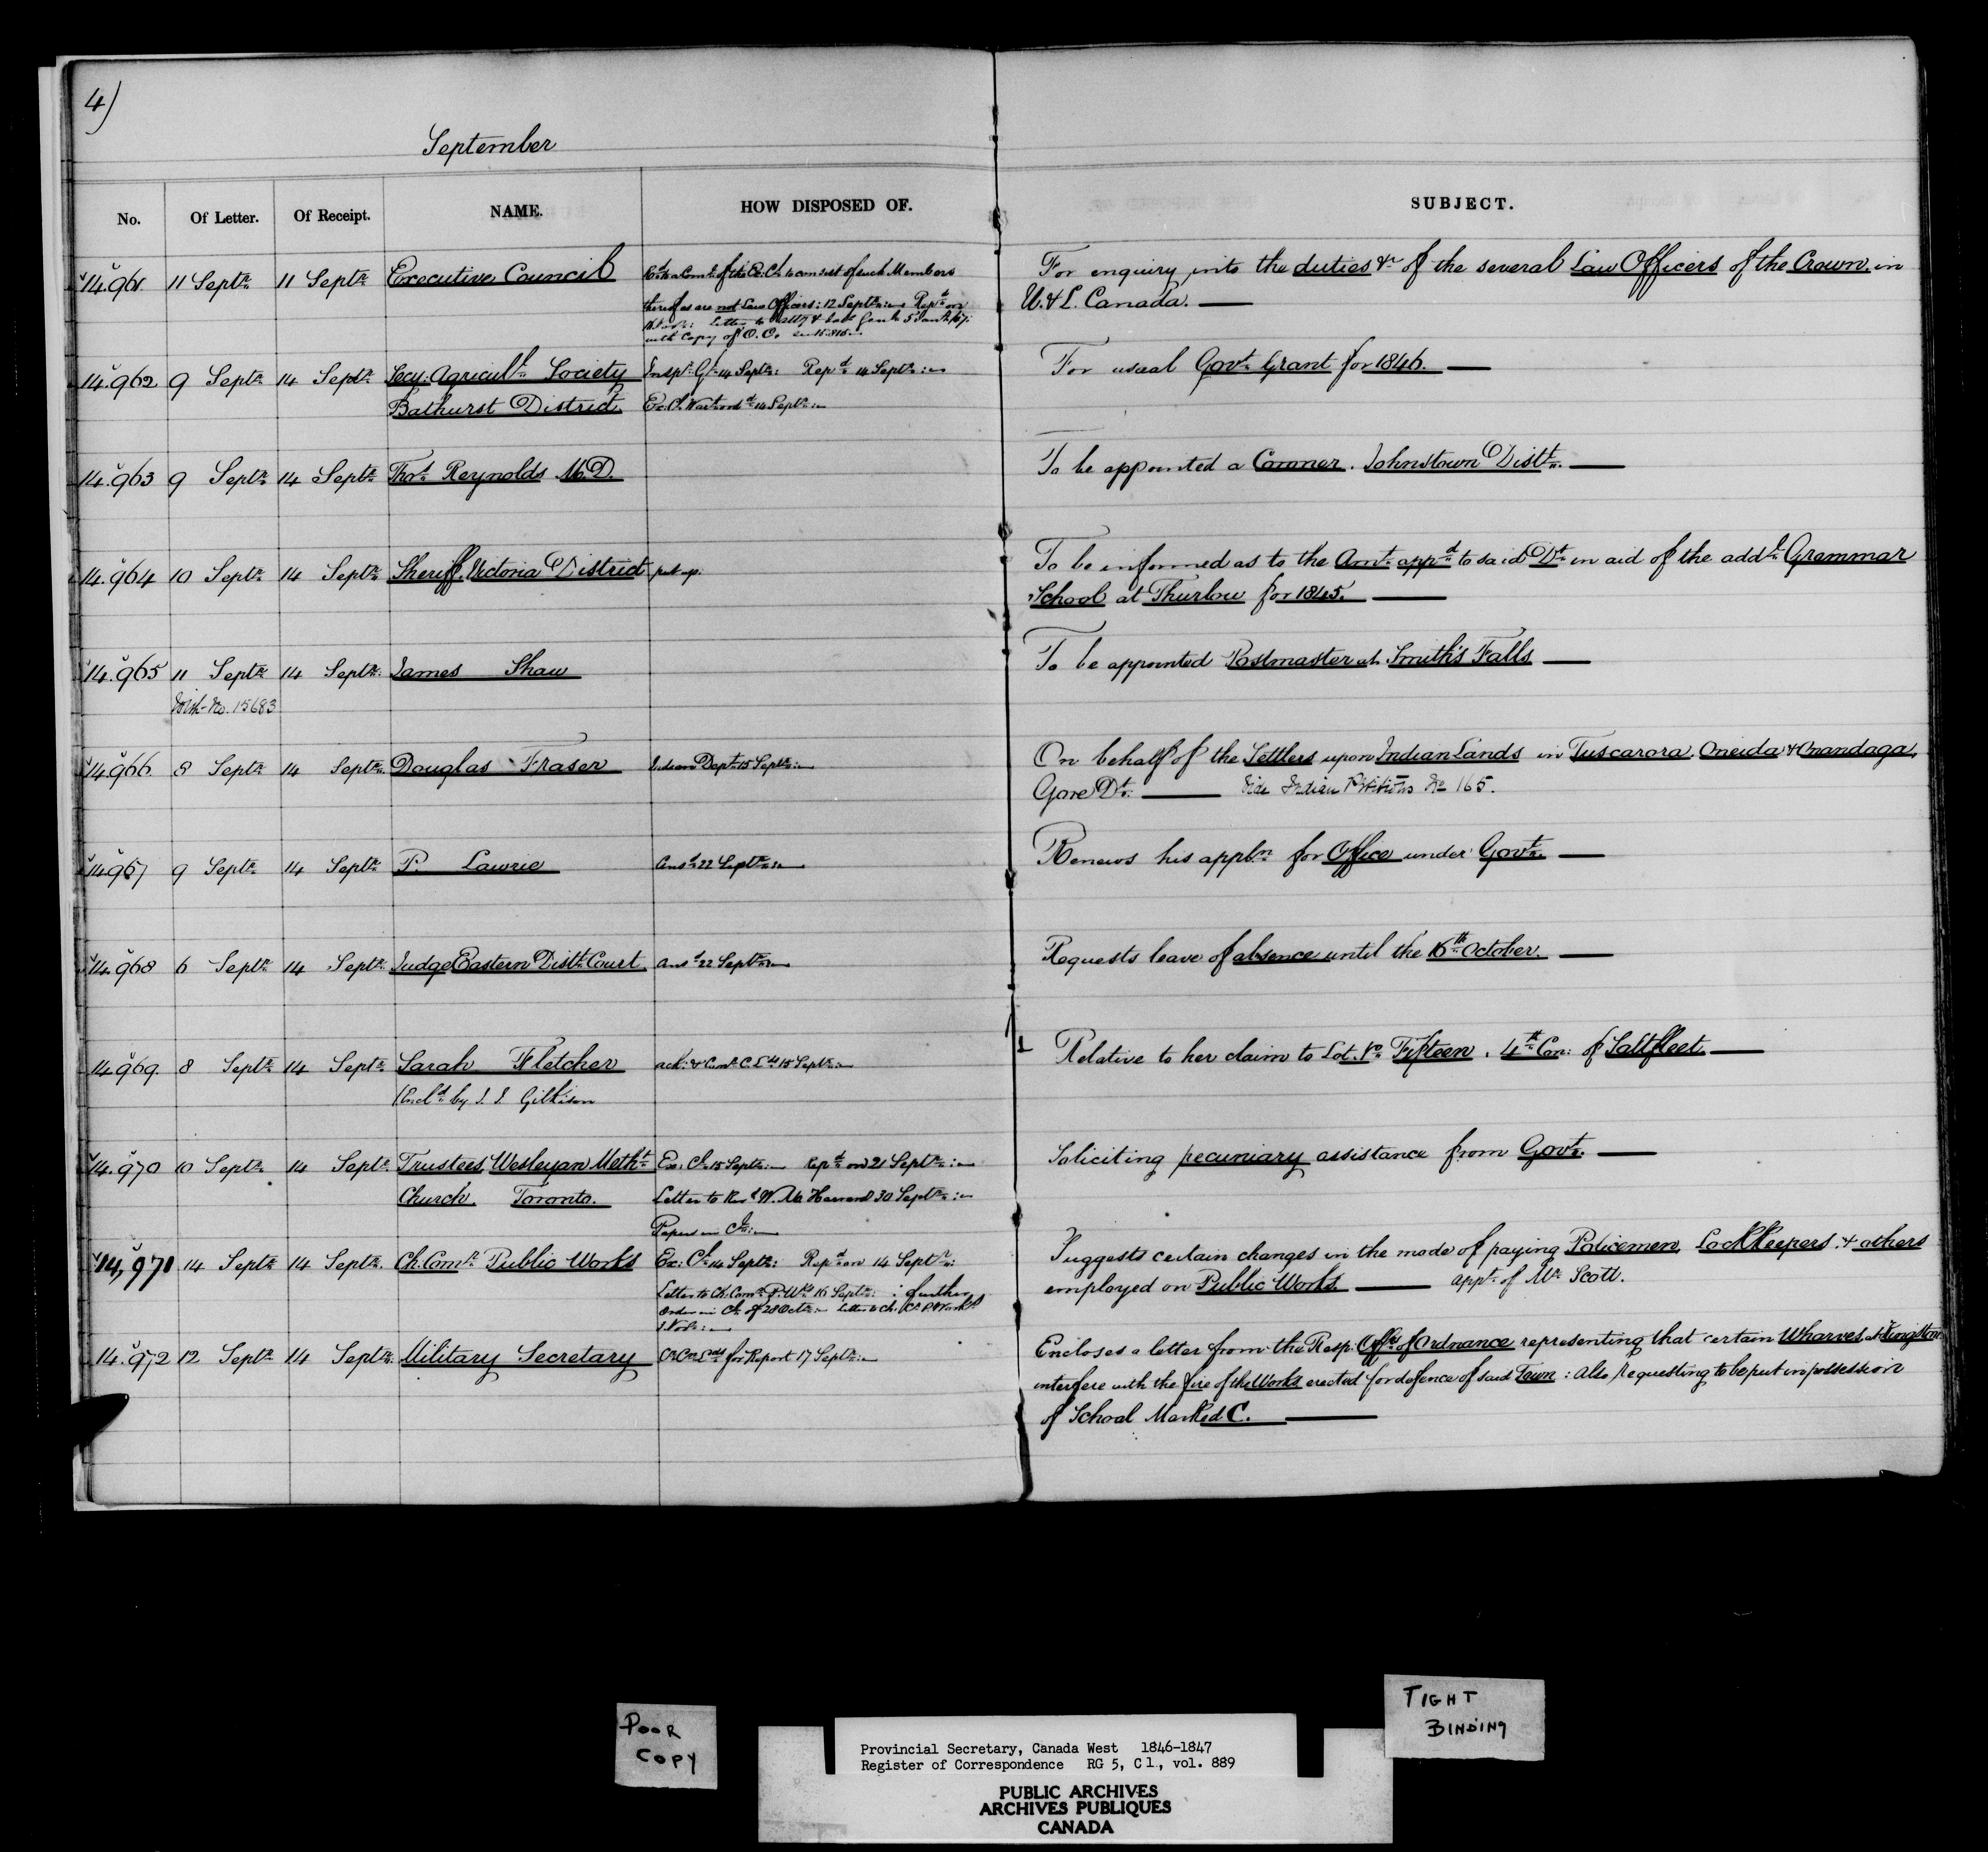 4)
September
No. Of Letter. Of Receipt. NAME. HOW DISPOSED OF. SUBJECT.
14.961 11 Septr 11 Septr Executive Council Comte of the Ex. Cl. to consist of such Members For enquiry into the duties &c of the several Law Officers of the Crown in
thereof as are not Law Officers: 12 Septr: Repd on U. & L. Canada.
with Copy of O.C.
14.962 9 Septr 14 Septr Secy. Agricultl Society Inspr Gl 14 Septr: Repd 14 Septr: For usual Govt Grant for 1846.
Bathurst District Ex. Cl. 14 Septr:
14.963 9 Septr 14 Septr Thos Reynolds M.D. To be appointed a Coroner. Johnstown Distt.
14.964 10 Septr 14 Septr Sheriff Victoria District put up. To be informed as to the Amt appd to said Dt in aid of the addl Grammar
School at Thurlow for 1845.
14.965 11 Septr 14 Septr James Shaw To be appointed Postmaster at Smith's Falls
With No. 15683
14.966 8 Septr 14 Septr Douglas Fraser Indian Dept 15 Septr: On behalf of the Settlers upon Indian Lands in Tuscarora, Oneida & Onandaga,
Gore Dt. Vide Indian Petitions No 165.
14.967 9 Septr 14 Septr P. Lawrie Ansd 22 Septr: Renews his appln for Office under Govt.
14.968 6 Septr 14 Septr Judge Eastern Distt Court Ansd 22 Septr Requests leave of absence until the 16th October.
14.969 8 Septr 14 Septr Sarah Fletcher ack: & Comr C. Lds 15 Septr: Relative to her claim to Lot No Fifteen, 4th Con: of Saltfleet.
(Encld by J. J. Gilkison
14.970 10 Septr 14 Septr Trustees, Wesleyan Metht Ex: Cl. 15 Septr: Repd on 21 Septr: Soliciting pecuniary assistance from Govt.
Church. Toronto. Letter to Revd W. M. Harvard 30 Septr:
Papers in Cl:
14,971 14 Septr 14 Septr Ch. Comr Public Works Ex: Cl. 14 Septr: Repd on 14 Septr: Suggests certain changes in the mode of paying Policemen, Lock Keepers, & others
Letter to Ch. Comr P. Wks 16 Septr: further employed on Public Works. appt of Mr Scott.
Order in Cl. of 28 Octr:
14.972 12 Septr 14 Septr Military Secretary for Report 17 Septr: Encloses a letter from the Resp: Offrs of Ordnance representing that certain Wharves at Kingston
interfere with the fire of the Works erected for defence of said Town: Also requesting to be put in possession
of School Marked C.
POOR
COPY
TIGHT
BINDING
Provincial Secretary, Canada West 1846-1847
Register of Correspondence RG 5, C1., vol. 889
PUBLIC ARCHIVES
ARCHIVES PUBLIQUES
CANADA